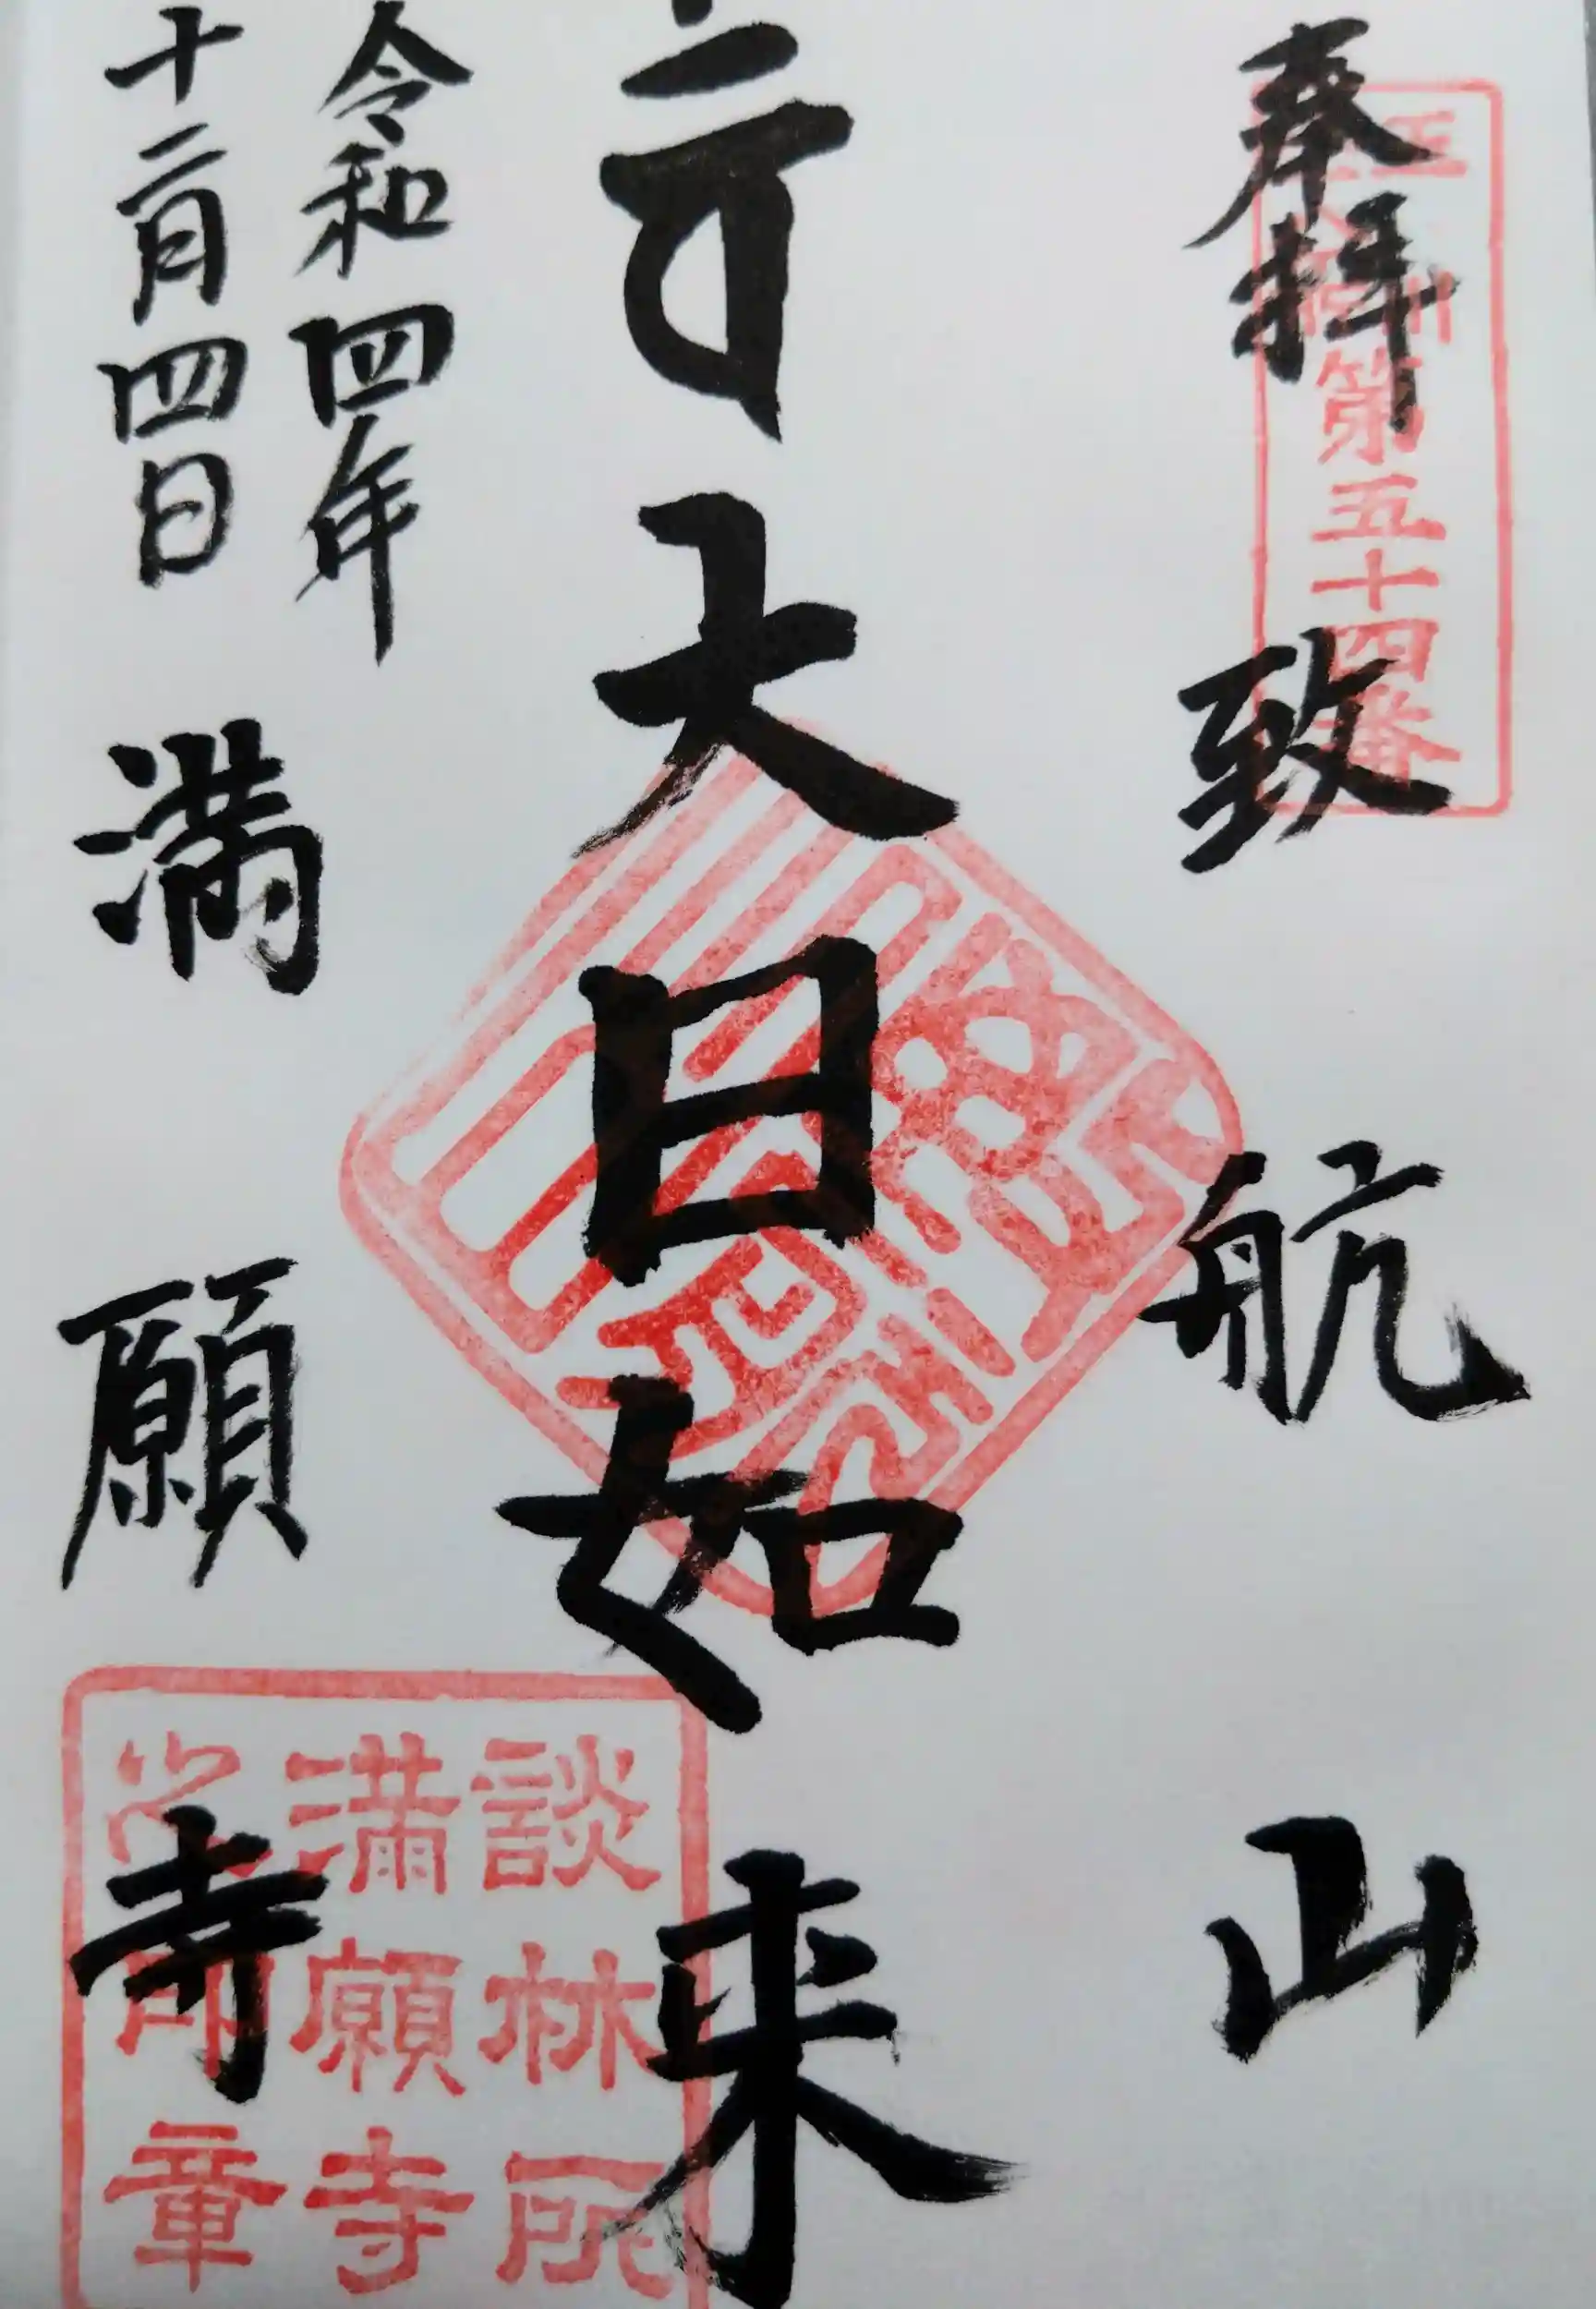 奉拝
致航山
第五十四番
大日如来
令和四年
十二月四日
満願寺
談林所
満願寺
印章